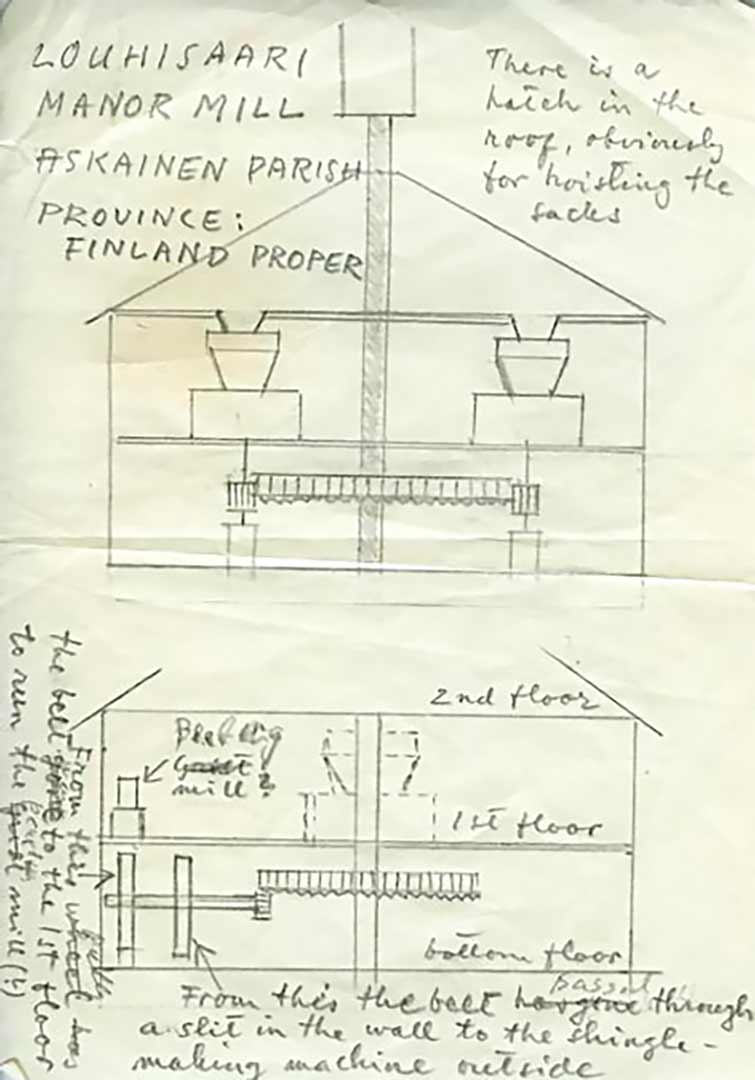 LOUHISAARI
MANOR MILL
ASKAINEN PARISH
PROVINCE:
FINLAND PROPER
There is a
hatch in the
roof, obviously
for hoisting the
sacks
2nd floor
mill?
1st floor
bottom floor
From this pulley has
the belt gone to the 1st floor
to run the mill (?)
passed
From this the belt has gone through
a slit in the wall to the shingle-
making machine outside